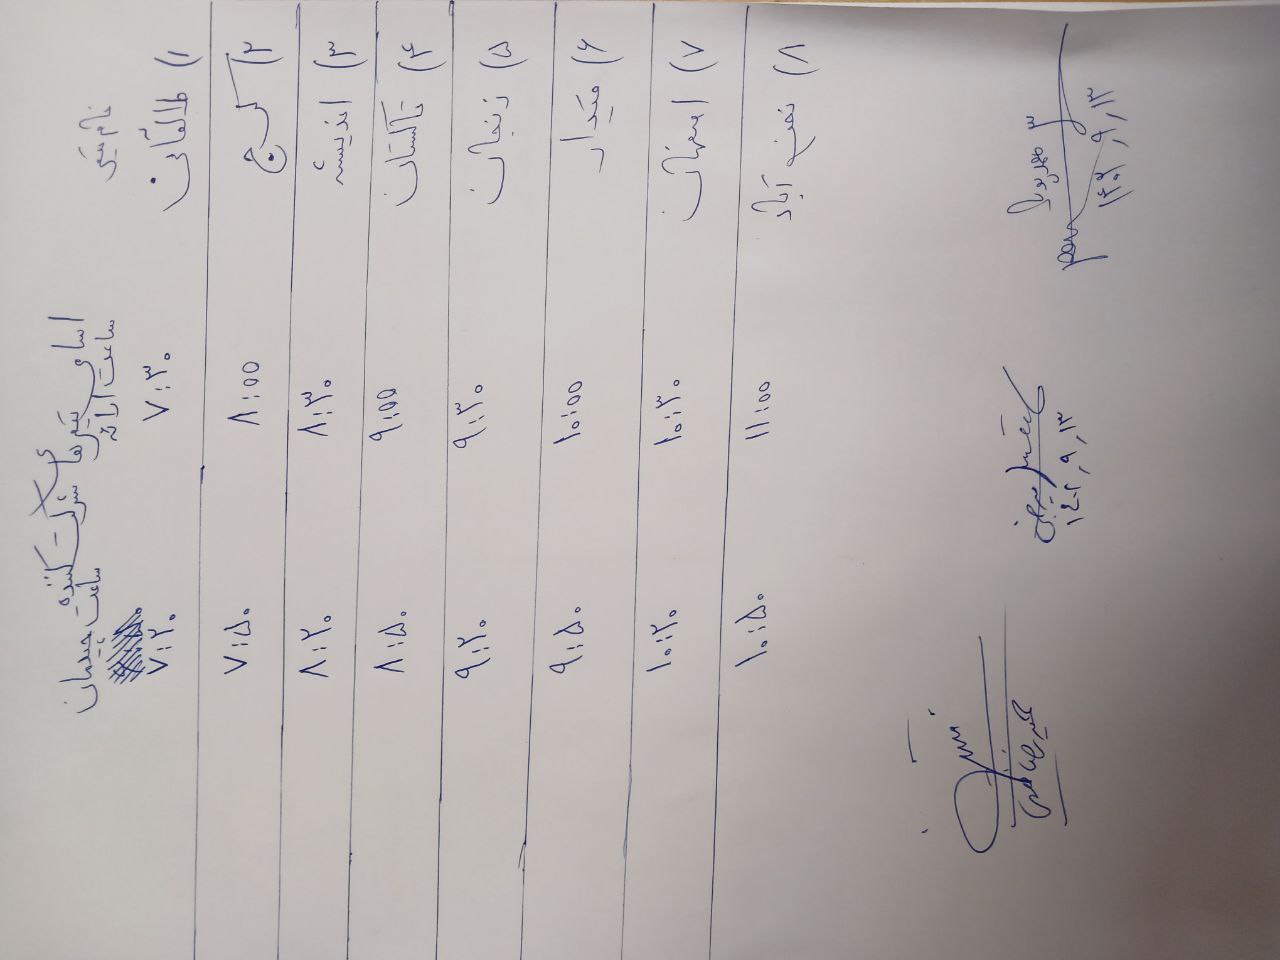 اسامی تیم‌ها شرکت کننده
نام تیم ساعت ارائه ساعت چیدمان
۱) طالقانی ۷:۳۰ ۷:۲۰
۲) کرج ۸:۰۰ ۷:۵۰
۳) اندیشه ۸:۳۰ ۸:۲۰
۴) تاکستان ۹:۰۰ ۸:۵۰
۵) زنجان ۹:۳۰ ۹:۲۰
۶) ۱۰:۰۰ ۹:۵۰
۷) اصفهان ۱۰:۳۰ ۱۰:۲۰
۸) نصیر آباد ۱۱:۰۰ ۱۰:۵۰
۱۴۰۲,۹,۱۳
۱۴۰۲,۹,۱۳